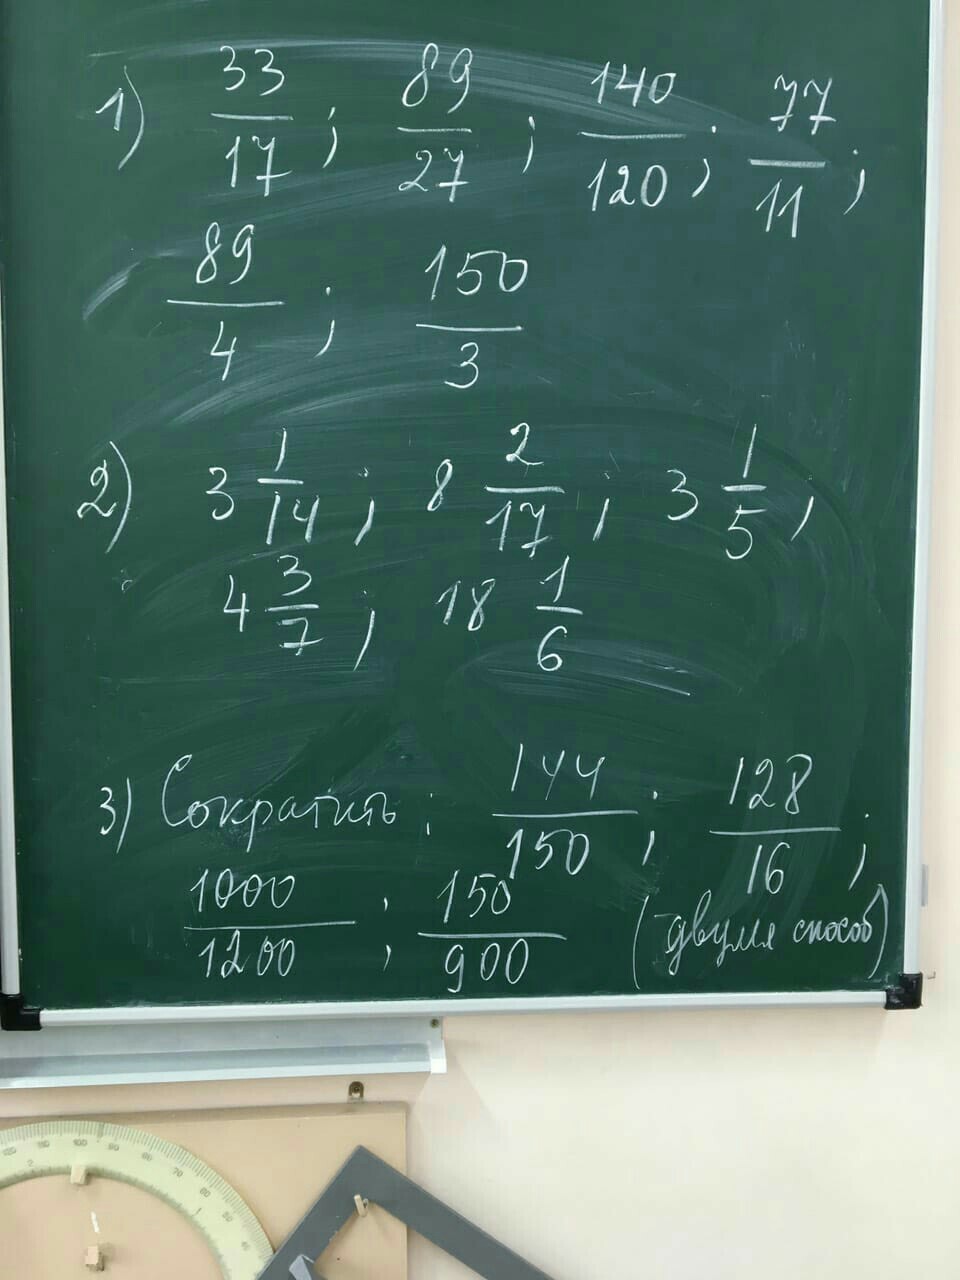 1) 33/17 ; 89/27 ; 140/120 ; 77/11 ;
89/4 ; 150/3
2) 3 1/14 ; 8 2/17 ; 3 1/5 ;
4 3/7 ; 18 1/6
3) Сократить : 144/150 ; 128/16 ;
1000/1200 ; 150/900 (двумя способ)